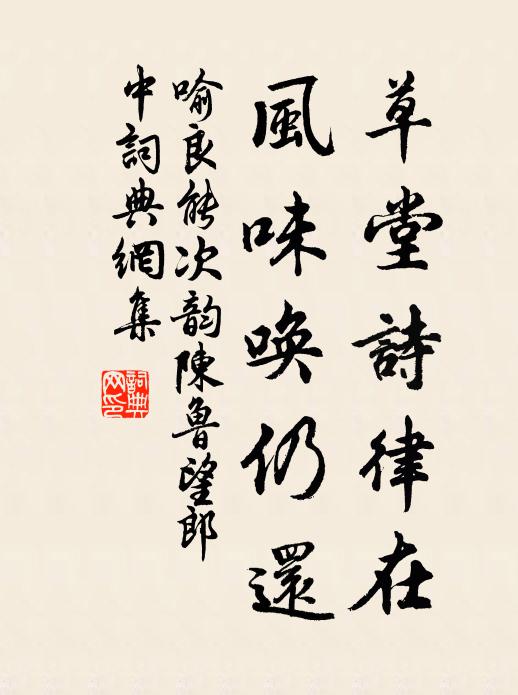 草堂詩律在
風味喚仍還
喻良能次韵陳魯望郎
中詞典網集
詞典
网印